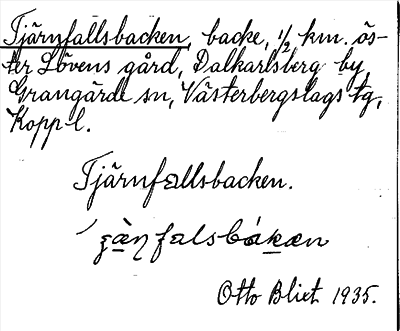 Tjärnfallsbacken, backe, ½ km. ös-
ter Lövens gård, Dalkarlsberg by
Grangärde sn, Västerbergslags tg,
Kopp l.
Tjärnfallsbacken.
Otto Blixt 1935.